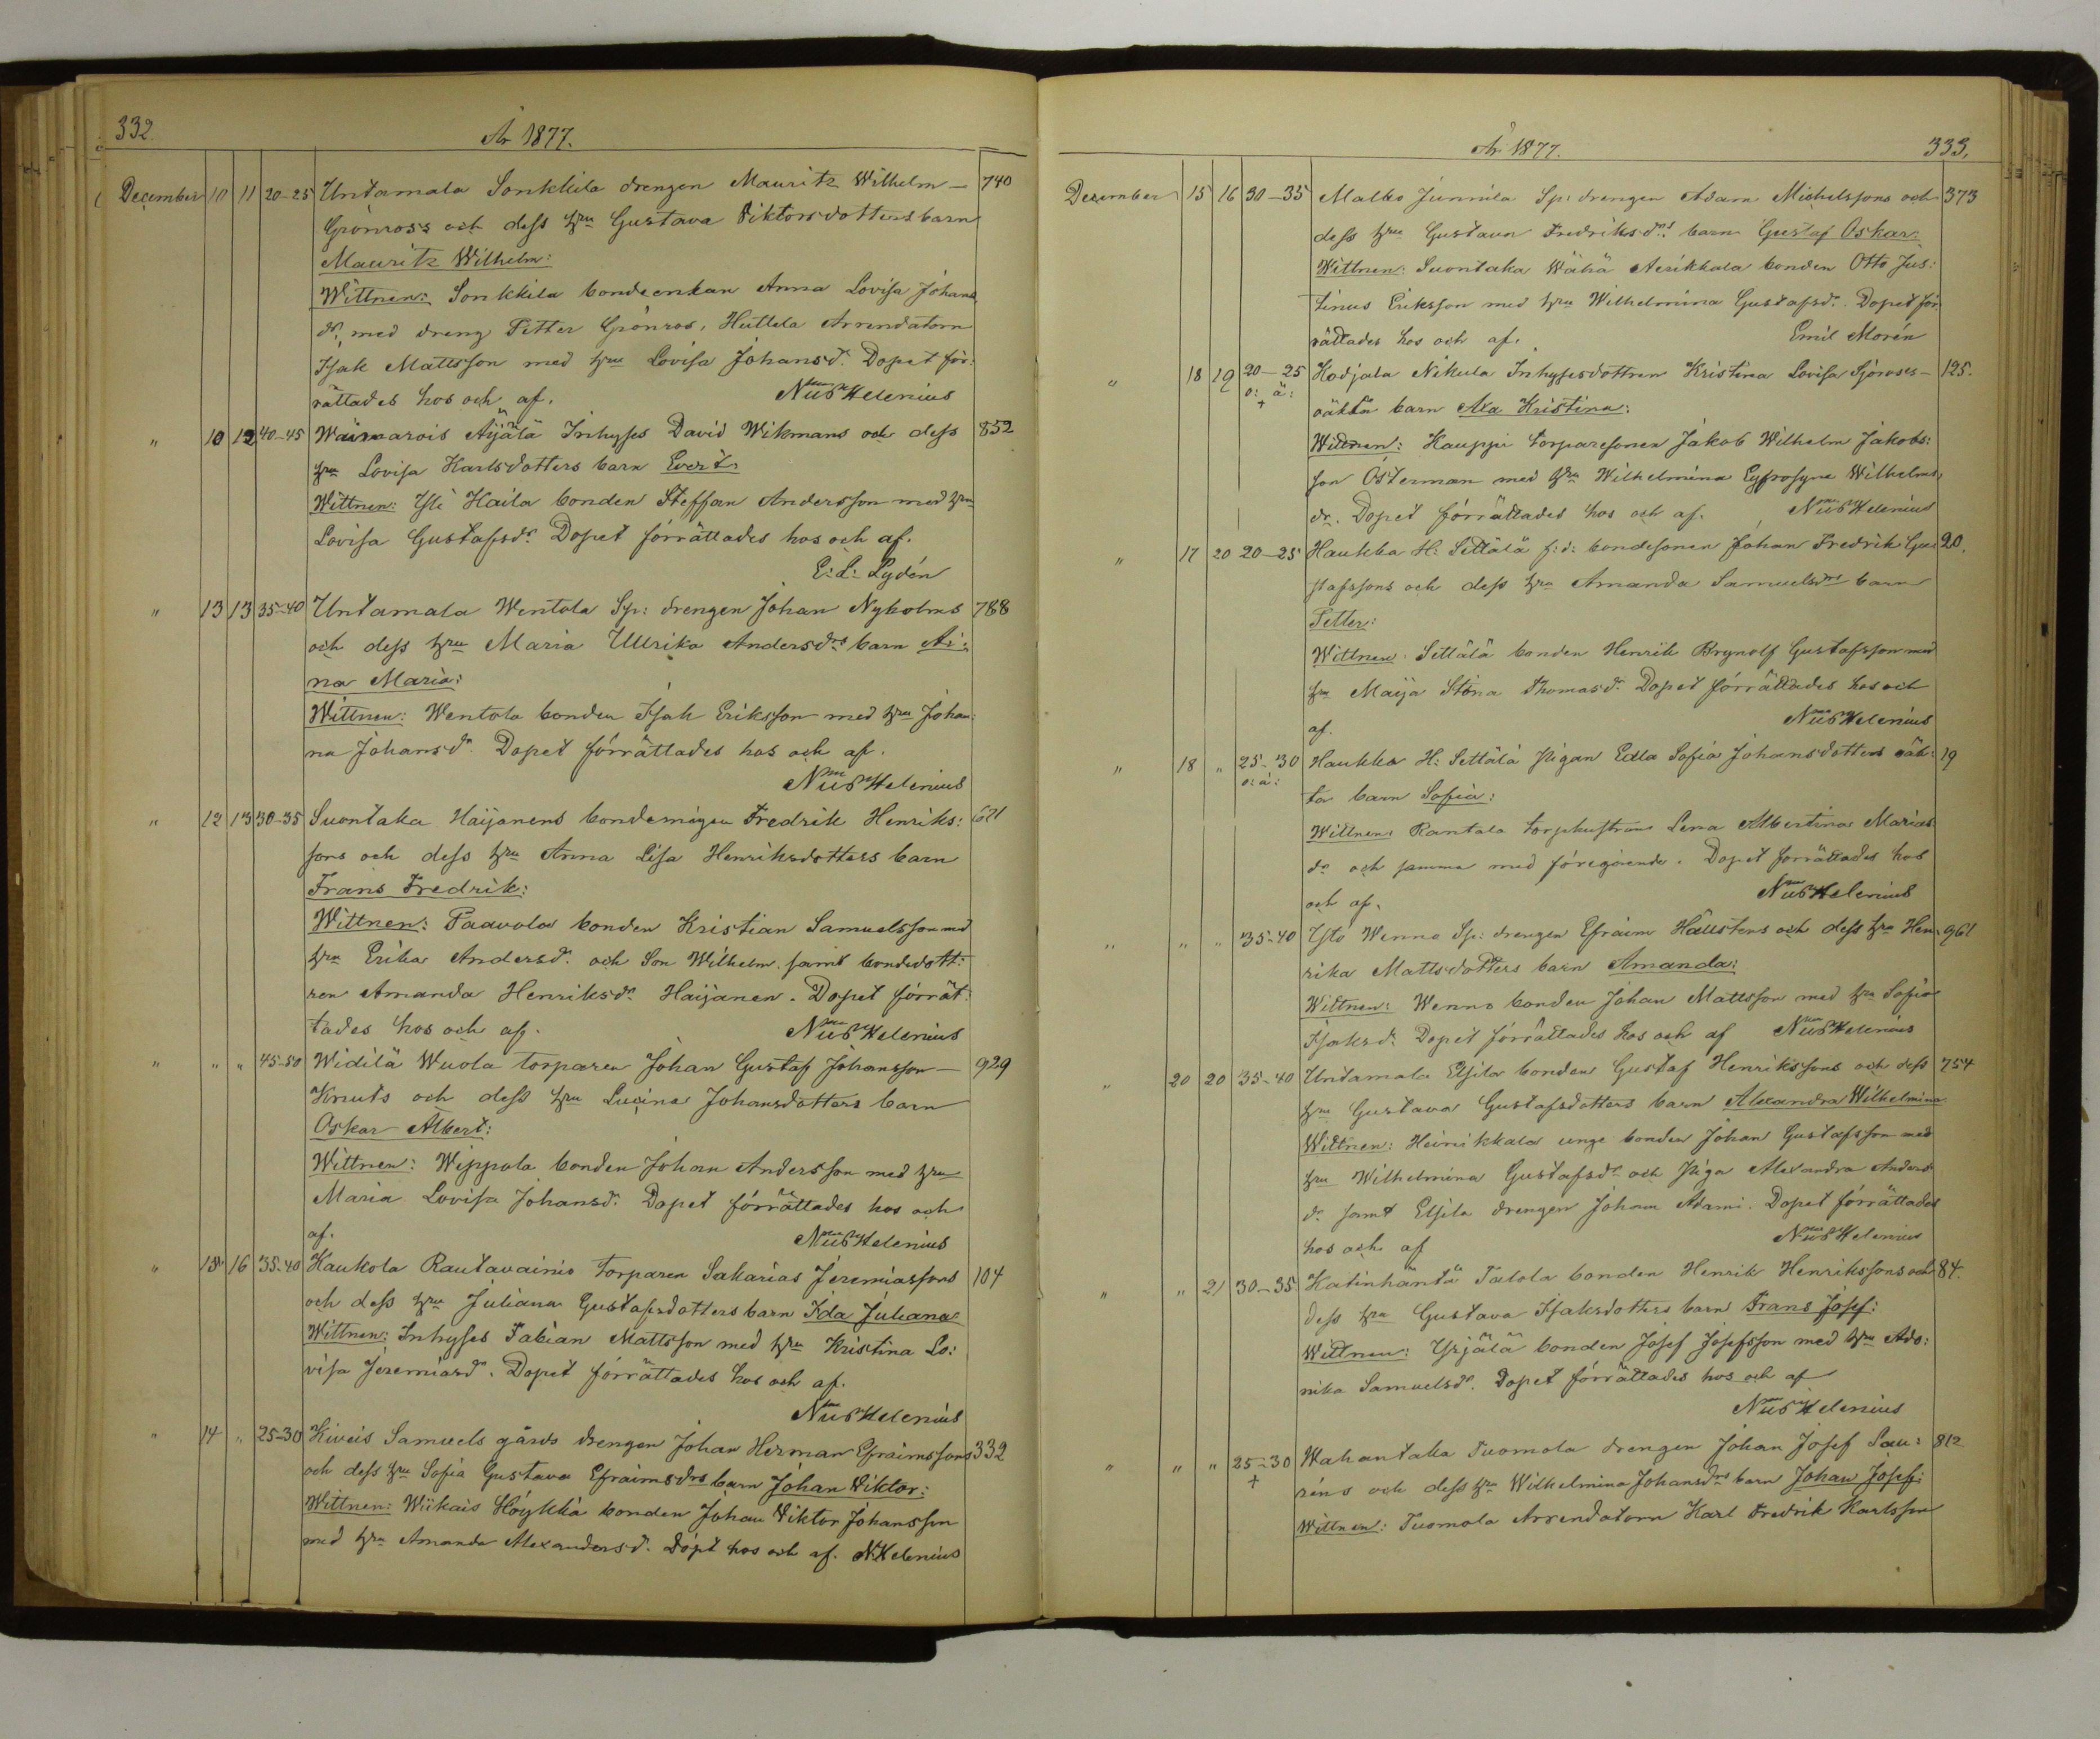 332.
År 1877.
December 10 11 20-25 Untamala Sonkkila drengen Mauritz Wilhelm — 740
Grönross och dess hru Gustava Viktorsdotters barn
Mauritz Wilhelm:
Wittnen: Sonkkila bondeenkan Anna Lovisa Johans
dr, med dreng Petter Grönros, Huttela Arrendatorn
Isak Mattsson med hru Lovisa Johansdr. Dopet för:
rättades hos och af. Nils Helenius
" 10 12 40-45 Waimarois Äijälä Inhyses David Wikmans och dess 852
hru Lovisa Karlsdotters barn Evert:
Wittnen: Yli Haila bonden Steffan Andersson med hru
Lovisa Gustafsdr. Dopet förrättades hos och af.
E: L: Lydén
" 13 13 35-40 Untamala Wentola Sp: drengen Johan Nyholms 788
och dess hru Maria Ullrika Andersdrs barn Ai:
na Maria:
Wittnen: Wentola bonden Isak Eriksson med hru Johan:
na Johansdr. Dopet förrättades hos och af.
Nils Helenius
" 12 13 30-35 Suontaka Haijanens bondemågen Fredrik Henriks: 671
sons och dess hru Anna Lisa Henriksdotters barn
Frans Fredrik:
Wittnen: Paavola bonden Kristian Samuelsson med
hru Erika Andersdr. och Son Wilhelm. samt bondedott:
ren Amanda Henriksdr Haijanen. Dopet förrät:
tades hos och af. Nils Helenius
" " " 45-50 Widilä Wuola torparen Johan Gustaf Johansson — 929
Knuts och dess hru Lucina Johansdotters barn
Oskar Albert:
Wittnen: Wippola bonden Johan Andersson med hru
Maria Lovisa Johansdr. Dopet förrättades hos och
af. Nils Helenius
" 15 16 35-40 Kaukola Rautavainio torparen Sakarias Jeremiassons 104
och dess hru Juliana Gustafsdotters barn Ida Juliana
Wittnen: Inhyses Fabian Mattsson med hru Kristina Lo:
visa Jeremiasdr. Dopet förrättades hos och af.
Nils Helenius
" 14 " 25-30 Kiveis Samuels gårds drengen Johan Herman Efraimssons 332
och dess hru Sofia Gustava Efraimsdrs barn Johan Viktor:
Wittnen: Wiikais Höykkä bonden Johan Viktor Johansson
med hru Amanda Alexandersdr. Döpt hos och af. N. Helenius
År 1877. 333.
December 15 16 30-35 Malko Junnila Sp: drengen Adam Michelssons och 373
dess hru Gustava Fredriksdrs. barn Gustaf Oskar:
Wittnen: Suontaka Wähä Aerikkala bonden Otto Jus:
tinus Eriksson med hru Wilhelmina Gustafsdr. Dopet för
rättades hos och af. Emil Morén
" 18 19 20-25 Kodjala Nikula Inhysesdottren Kristina Lovisa Sjöroses — 125.
o: ä: + oäkta barn Axa Kristina:
Wittnen: Kauppi torparesonen Jakob Wilhelm Jakobs:
son Österman med hru Wilhelmina Eyfrosyne Wilhelms
dr. Dopet förrättades hos och af. Nils Helenius
" 17 20 20-25 Haukka H: Settälä f: d: bondesonen Johan Fredrik Gu: 20.
stafssons och dess hru Amanda Samuelsdrs barn
Petter:
Wittnen: Settälä bonden Henrik Brynolf Gustafsson med
hru Maija Stina Thomasdr. Dopet förrättades hos och
af. Nils Helenius
" 18 " 25-30 Haukka H: Settälä Pigan Edla Sofia Johansdotters oäk: 19
o: ä: ta barn Sofia:
Wittnen: Rantala torphustrun Lena Albertina Marias
dr och samma med föregående. Dopet förrättades hos
och af. Nils Helenius
" " " 35-40 Ystö Wenno Sp: drengen Efraim Hällstens och dess hru Hen: 961
rika Mattsdotters barn Amanda:
Wittnen: Wenno bonden Johan Mattsson med hru Sofia
Isaksdr. Dopet förrättades hos och af Nils Helenius
" 20 20 35-40 Untamala Eljila bonden Gustaf Henrikssons och dess 754
hru Gustava Gustafsdotters barn Alexandra Wilhelmina
Wittnen: Heinikkala unge bonden Johan Gustafsson med
hru Wilhelmina Gustafsdr och Piga Alexandra Anders
dr samt Eljila drengen Johan Adami. Dopet förrättades
hos och af Nils Helenius
" " 21 30-35 Katinhäntä Talola bonden Henrik Henrikssons och 84.
dess hru Gustava Isaksdotters barn Frans Josef:
Wittnen: Yrjälä bonden Josef Josefsson med hru Ado:
nika Samuelsdr. Dopet förrättades hos och af
Nils Helenius
" " " 25-30 Wahantaka Tuomola drengen Johan Josef Lau: 812
+ réns och dess hru Wilhelmina Johansdrs barn Johan Josef:
Wittnen: Tuomola Arrendatorn Karl Fredrik Karlsson